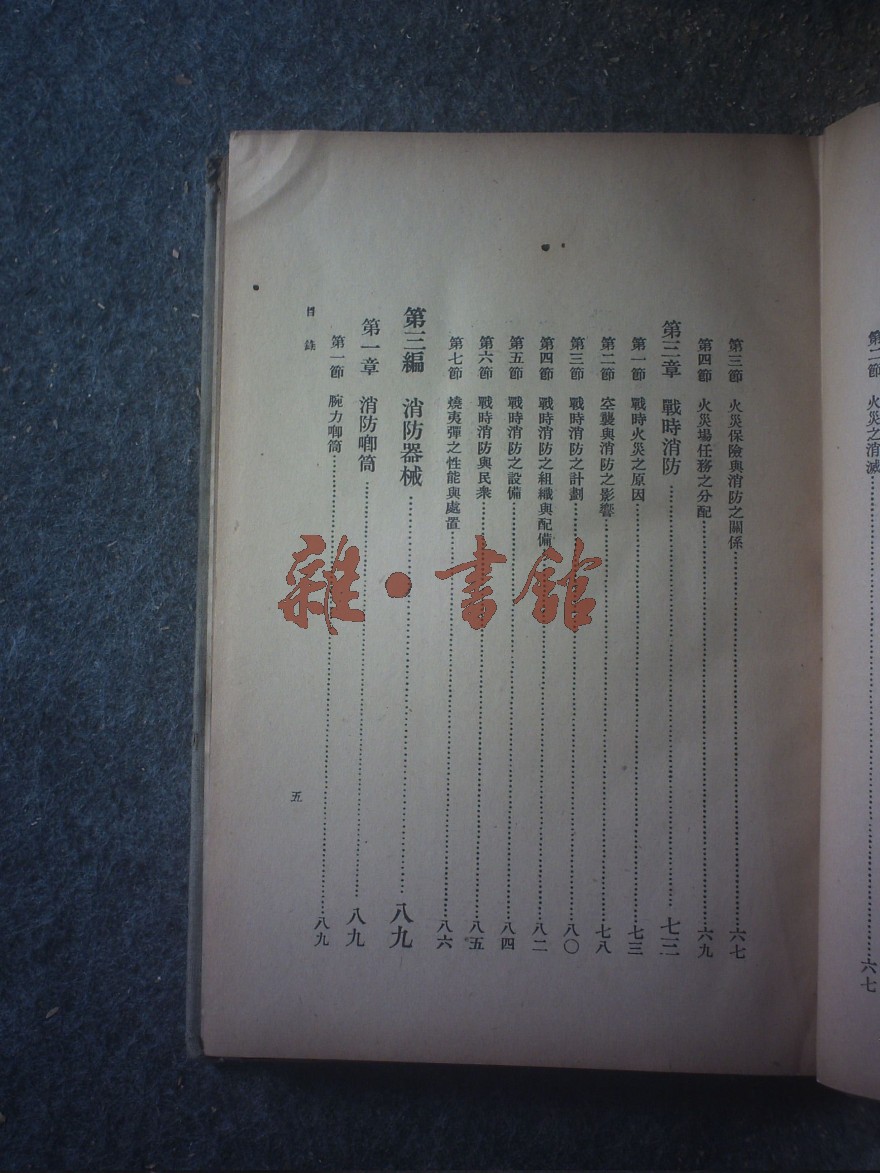 第二節　火災之消滅……六七
第三節　火災保險與消防之關係……六七
第四節　火災場任務之分配……六九
第三章　戰時消防……七三
第一節　戰時火災之原因……七三
第二節　空襲與消防之影響……七八
第三節　戰時消防之計劃……八〇
第四節　戰時消防之組織與配備……八二
第五節　戰時消防之設備……八四
第六節　戰時消防與民衆……八五
第七節　燒夷彈之性能與處置……八六
第三編　消防器械……八九
第一章　消防喞筒……八九
第一節　腕力喞筒……八九
目錄
五
雜·書館